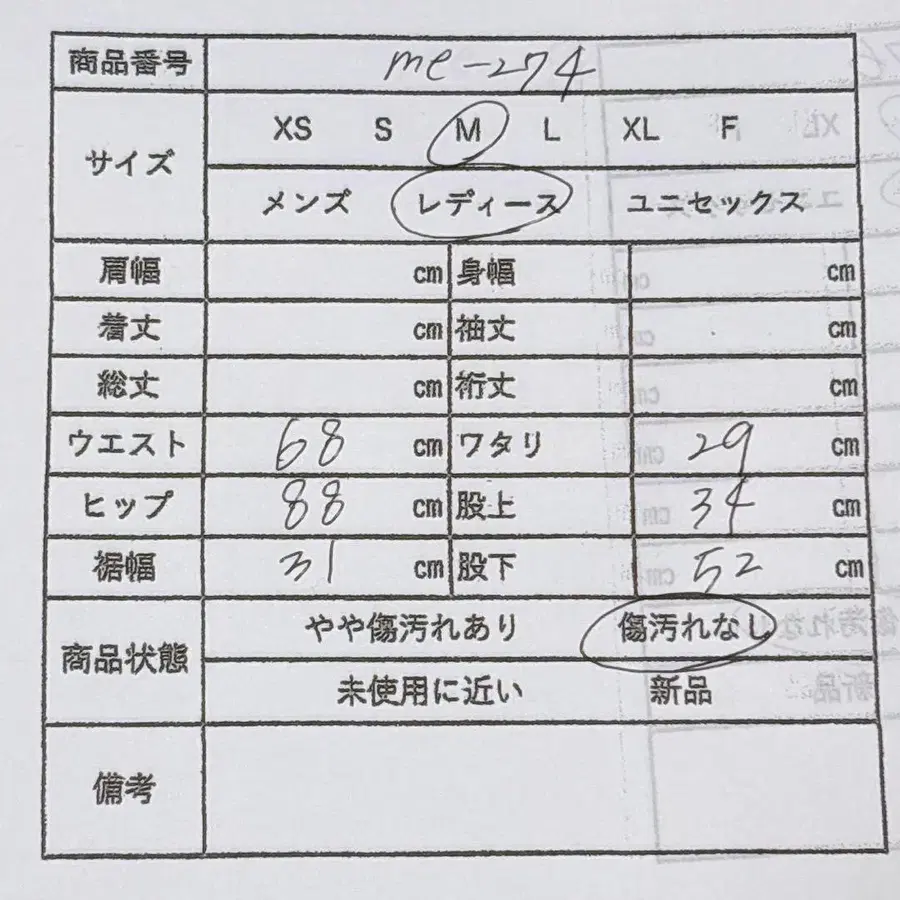 商品番号 me-274
サイズ XS S M L XL F
メンズ レディース ユニセックス
肩幅 cm 身幅 cm
着丈 cm 袖丈 cm
総丈 cm 裄丈 cm
ウエスト 68 cm ワタリ 29 cm
ヒップ 88 cm 股上 34 cm
裾幅 31 cm 股下 52 cm
商品状態 やや傷汚れあり 傷汚れなし
未使用に近い 新品
備考